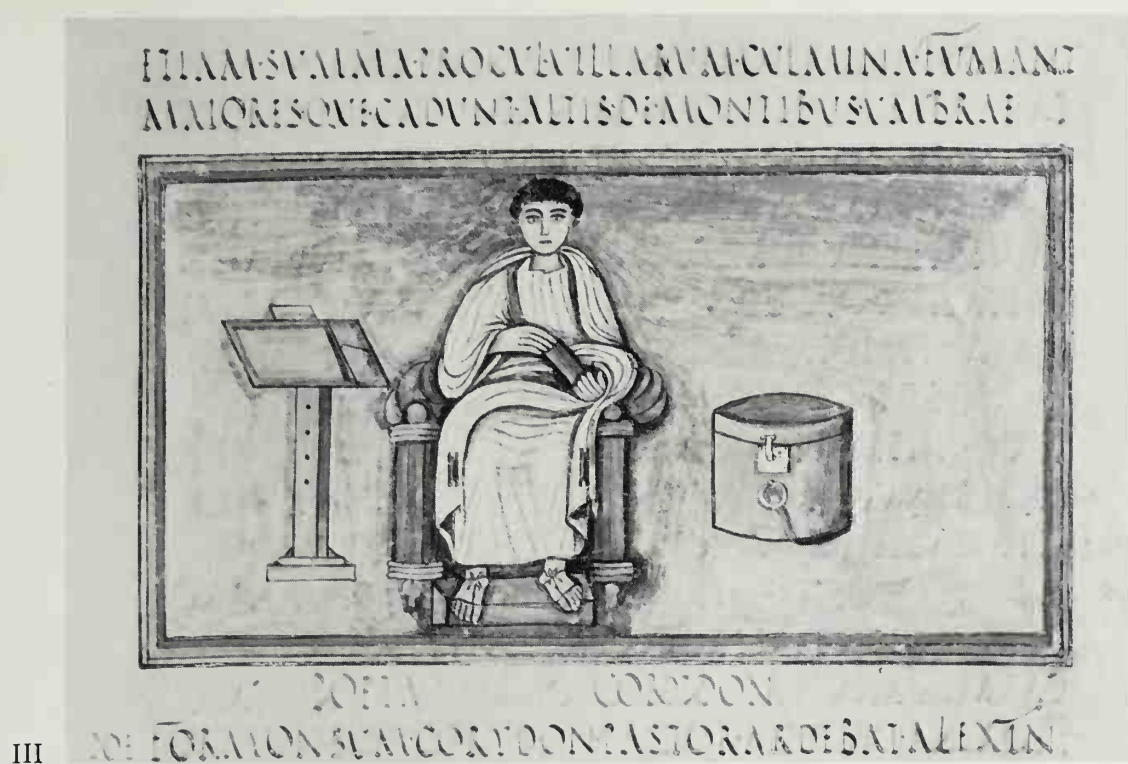 ETIAMSVMMAPROCVLVILLARVMCVLMINAFVMANT
MAIORESQVECADVNTALTISDEMONTIBVSVMBRAE
POETA CORYDON
III POE FORMONSVMCORYDONPASTORARDEBATALEXIN